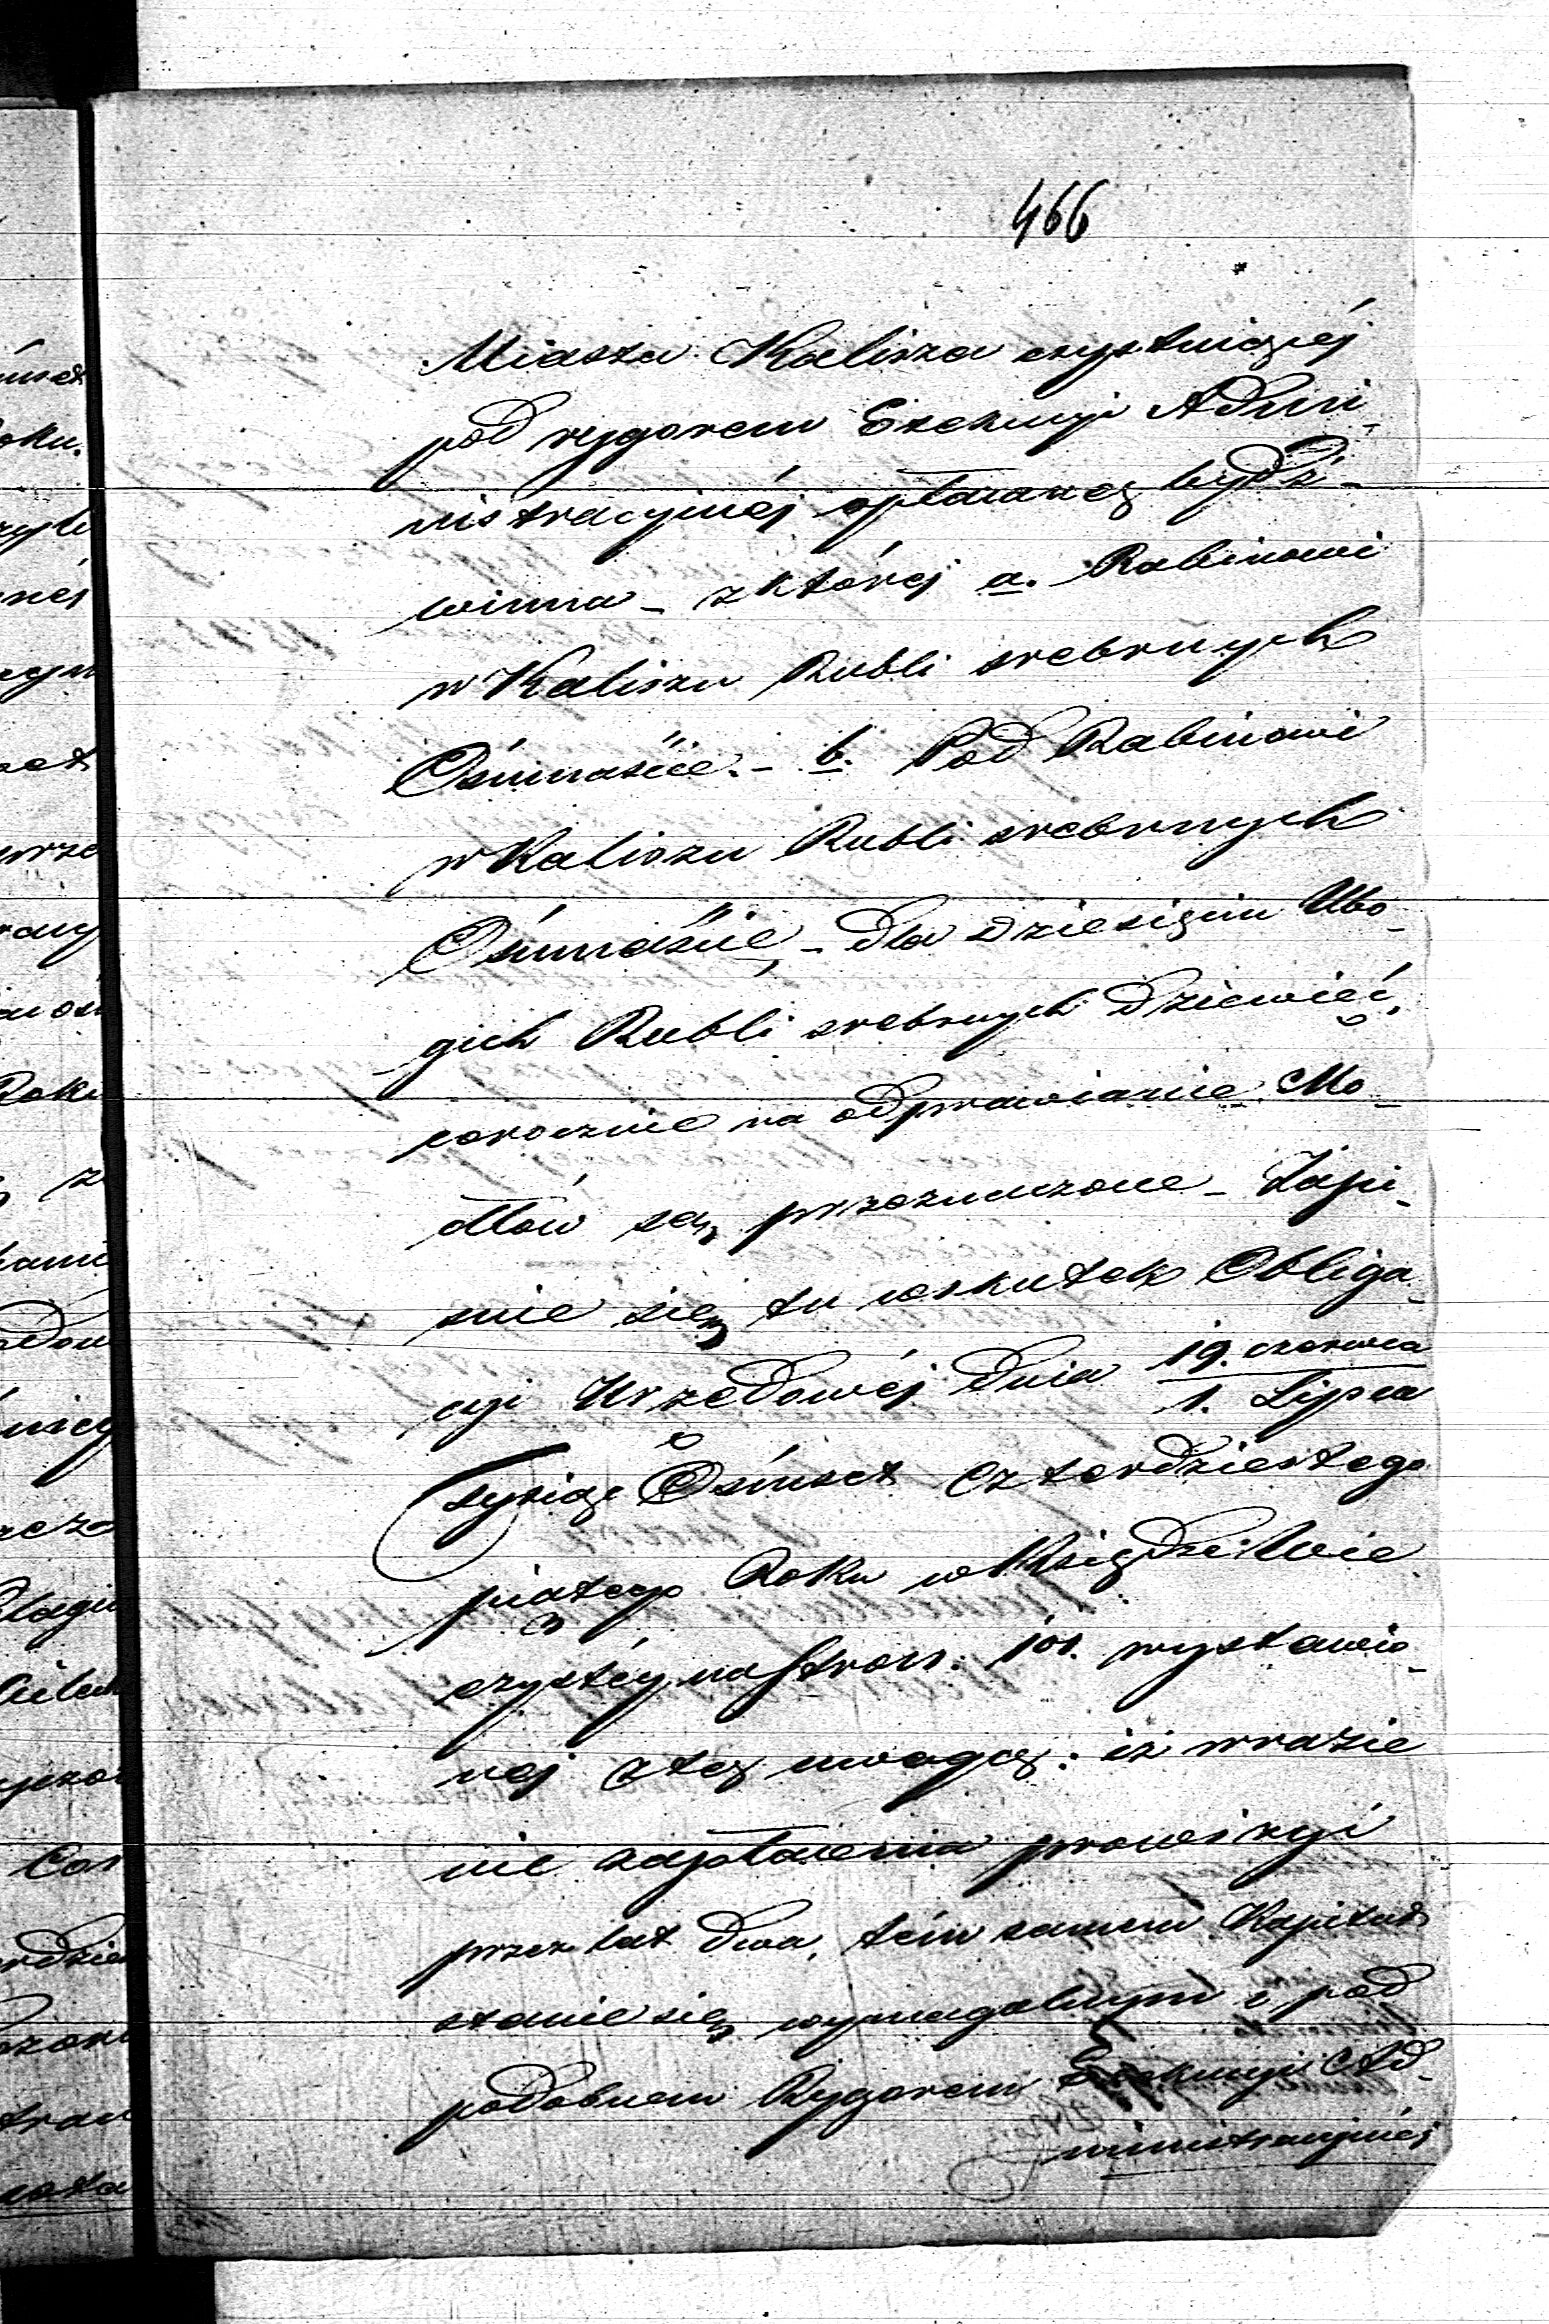 466
Miasta Kalisza exystuiącéj
pod rygorem Exekucyi Admi-
nistracyjnéj opłacaną bydź-
winna - z której a. Rabinowi
w Kaliszu Rubli srebrnych
Ośmnaście. - b. Pod Rabinowi
w Kaliszu Rubli srebrnych
Ośmnaście, - dla dziesięciu Ubo-
gich Rubli srebrnych dziewięć,
corocznie na odprawianie Mo-
dłów są przeznaczone - Zapi-
suie się tu wskutek Obliga-
cyi Urzędowéj dnia 19. czerwca
1. Lipca
Tysiąc Ośmset Czterdziestego
piątego Roku w Księdze Wie
czystéj na Stron: 101. wystawio-
nej z tą uwagą: iż w razie
nie zapłacenia prowizyi
przez lat dwa, tém samem Kapitał
stanie się wymagalnym i pod
podobnem Rygorem Exekucyi Ad-
ministracyjnéj